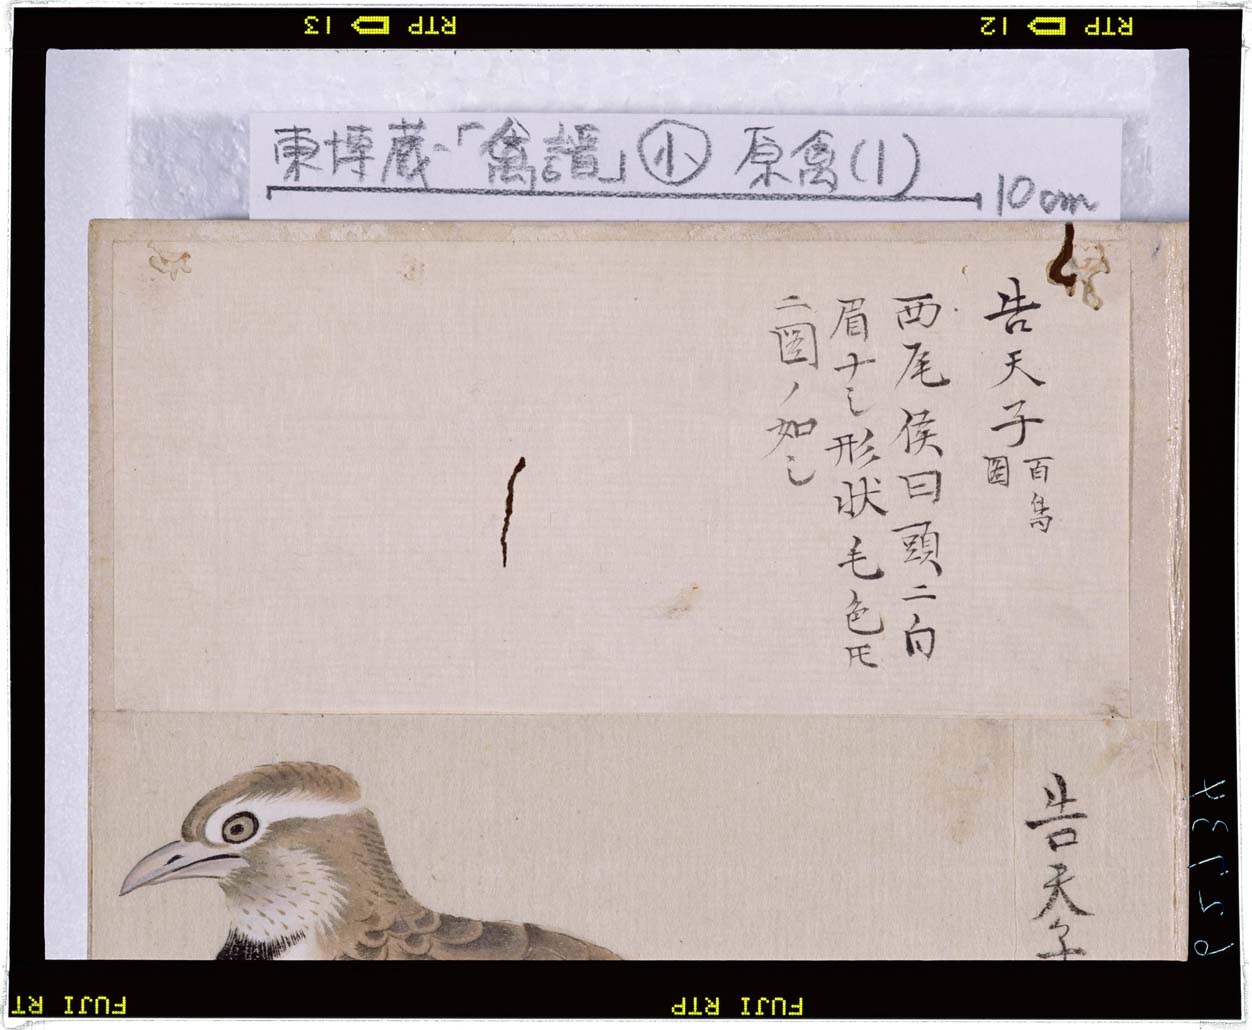 RTP 13
RTP 12
東博蔵「禽譜」小 原禽(1)
10cm
告天子 百鳥圖
西尾侯曰頭ニ白
眉ナシ形状毛色氏
ニ圖ノ如シ
告天子
FUJI RTP
FUJI RT